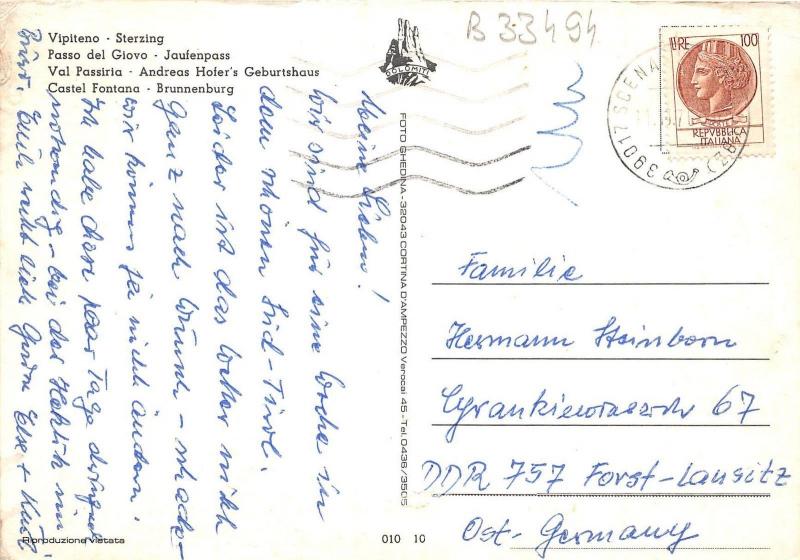 B 33494
Vipiteno · Sterzing
Passo del Giovo · Jaufenpass
Val Passiria · Andreas Hofer's Geburtshaus
Castel Fontana · Brunnenburg
DOLOMITI
LIRE 100
POSTE
REPVBBLICA
ITALIANA
39017 SCENA (BZ)
Meine Lieben!
Wir sind für eine Woche in
dem schönen Süd-Tirol.
Leider ist das Wetter nicht
ganz nach Wunsch – schade –
wir können ja nicht ändern.
Ich habe diese paar Tage dringend
notwendig – bei der Hektik im
Büro. Euch recht lieb Else + Kurt
FOTO GHEDINA - 32043 CORTINA D'AMPEZZO Verocai 45 - Tel. 0436/3505
Familie
Hermann Steinborn
67
DDR 757 Forst-Lausitz
Ost-Germany
Riproduzione vietata
010 10